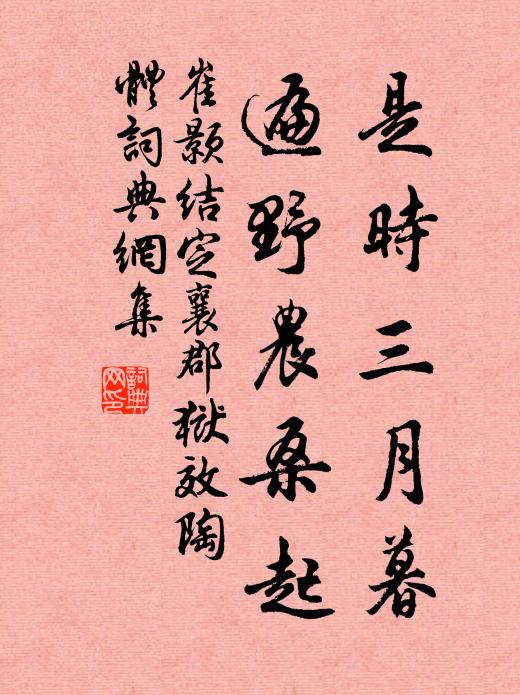 是時三月暮
遍野農桑起
崔颢結定襄郡獄效陶
體詞典網集
詞典網印